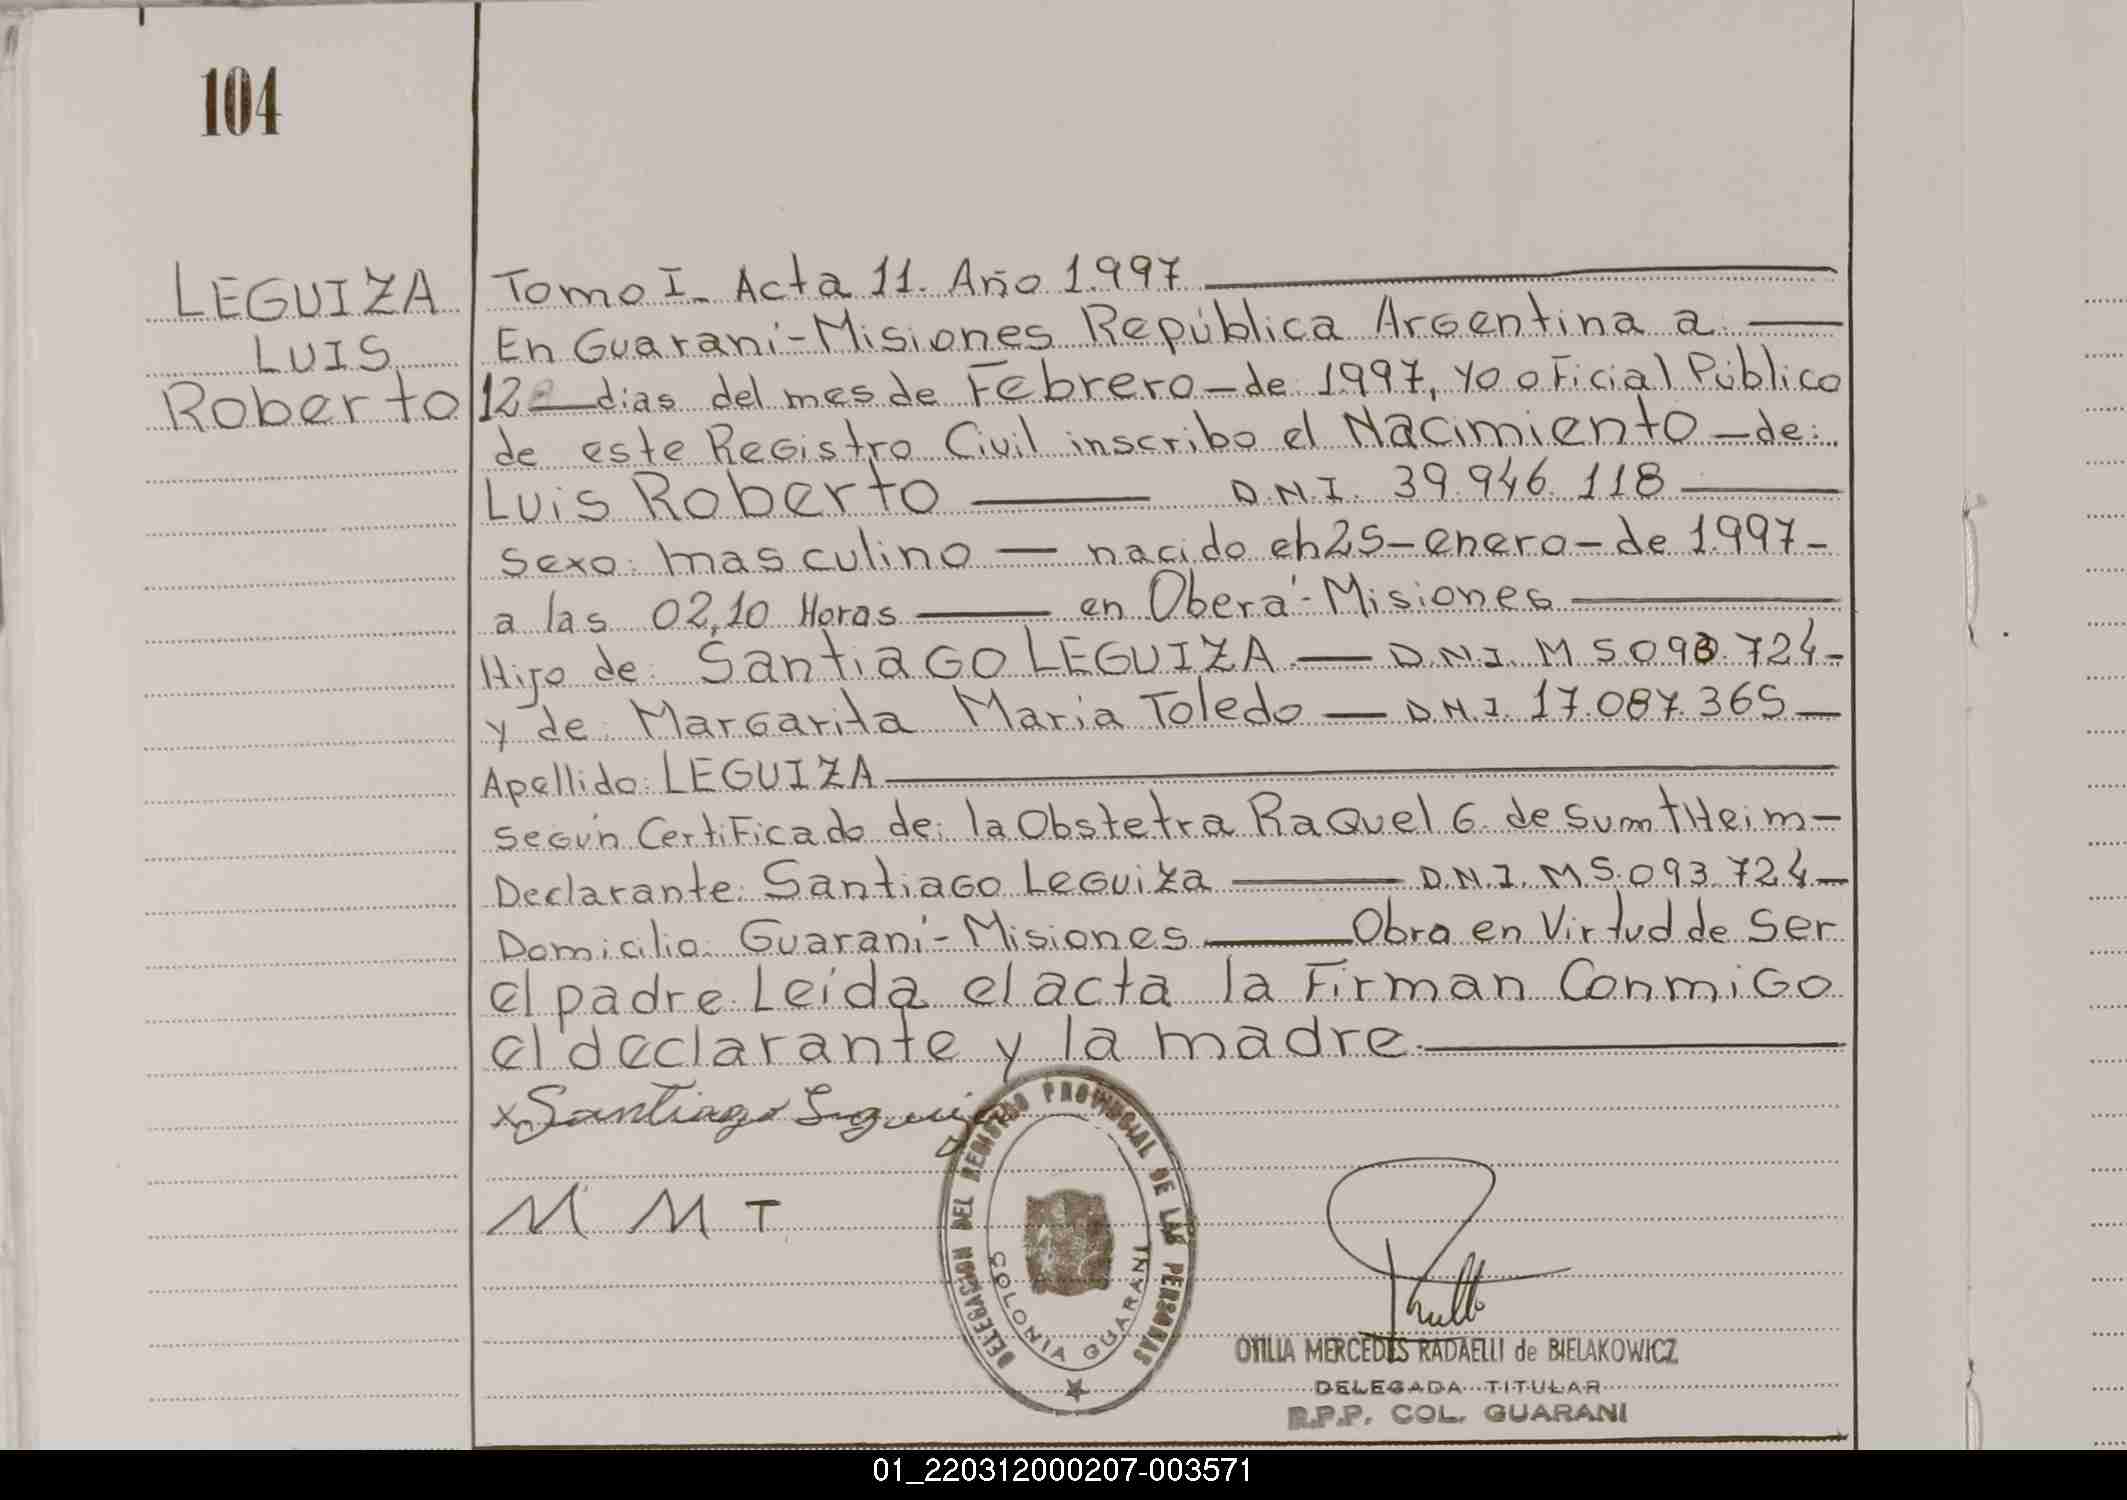 104
LEGUIZA
LUIS
Roberto
Tomo I. Acta 11. Año 1.997
En Guaraní-Misiones República Argentina a
12 dias del mes de Febrero-de 1997, yo oficial Público
de este Registro Civil inscribo el Nacimiento-de:
Luis Roberto D.N.I. 39.946.118
sexo: masculino — nacido el 25-enero-de 1.997-
a las 02,10 Horas en Oberá-Misiones
Hijo de: Santiago LEGUIZA — D.N.I. M 5.093.724-
y de: Margarita Maria Toledo — D.N.I. 17.087.365-
Apellido: LEGUIZA
según Certificado de: la Obstetra Raquel G. de SumtHeim-
Declarante: Santiago Leguiza D.N.I. M 5.093.724-
Domicilio: Guaraní-Misiones Obra en Virtud de Ser
el padre Leída el acta la Firman Conmigo
el declarante y la madre.
x Santiago Leguiza
M M T
DELEGACION DEL REGISTRO PROVINCIAL DE LAS PERSONAS
COLONIA GUARANI
OTILIA MERCEDES RADAELLI de BIELAKOWICZ
DELEGADA TITULAR
R.P.P. COL. GUARANI
01_220312000207-003571